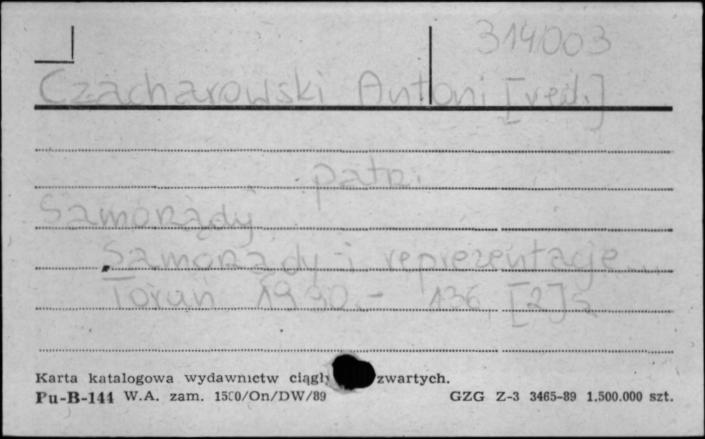 314003
Czacharowski Antoni [red.]
patrz
Samorządy
Samorządy i reprezentacje...
Toruń 1990.- 136, [2] s
Karta katalogowa wydawnictw ciągły zwartych.
Pu-B-144 W.A. zam. 1500/On/DW/89 GZG Z-3 3465-89 1.500.000 szt.